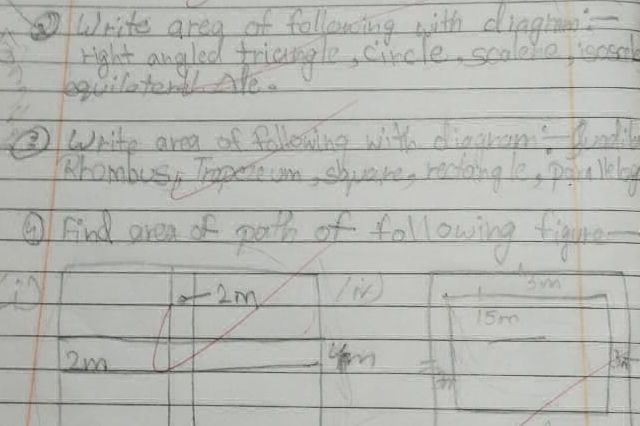 ② Write area of following with diagram:-
right angled triangle, circle, scalene, isoscele
equilateral Δle.
③ Write area of following with diagram:-
Rhombus, Trapezeum, square, rectangle, parallelog
④ Find area of path of following figure—
i) 2m iv) 3m
15m
2m 4m 3m